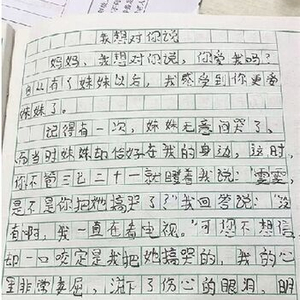 我想对你说
妈妈，我想对你说，你爱我吗？
自从有了妹妹以后，我感受到你更爱
妹妹了。
记得有一次，妹妹无意间哭了，
而当时妹妹却恰好在我的身边，这时，
你不管三七二十一就瞪着我说：“雯雯，
是不是你把她搞哭了？”我回答说：“没
有啊，我一直在看电视。”可您不想信
却一口咬定是我把她搞哭的，我的心
里非常委屈，流下了伤心的眼泪，明